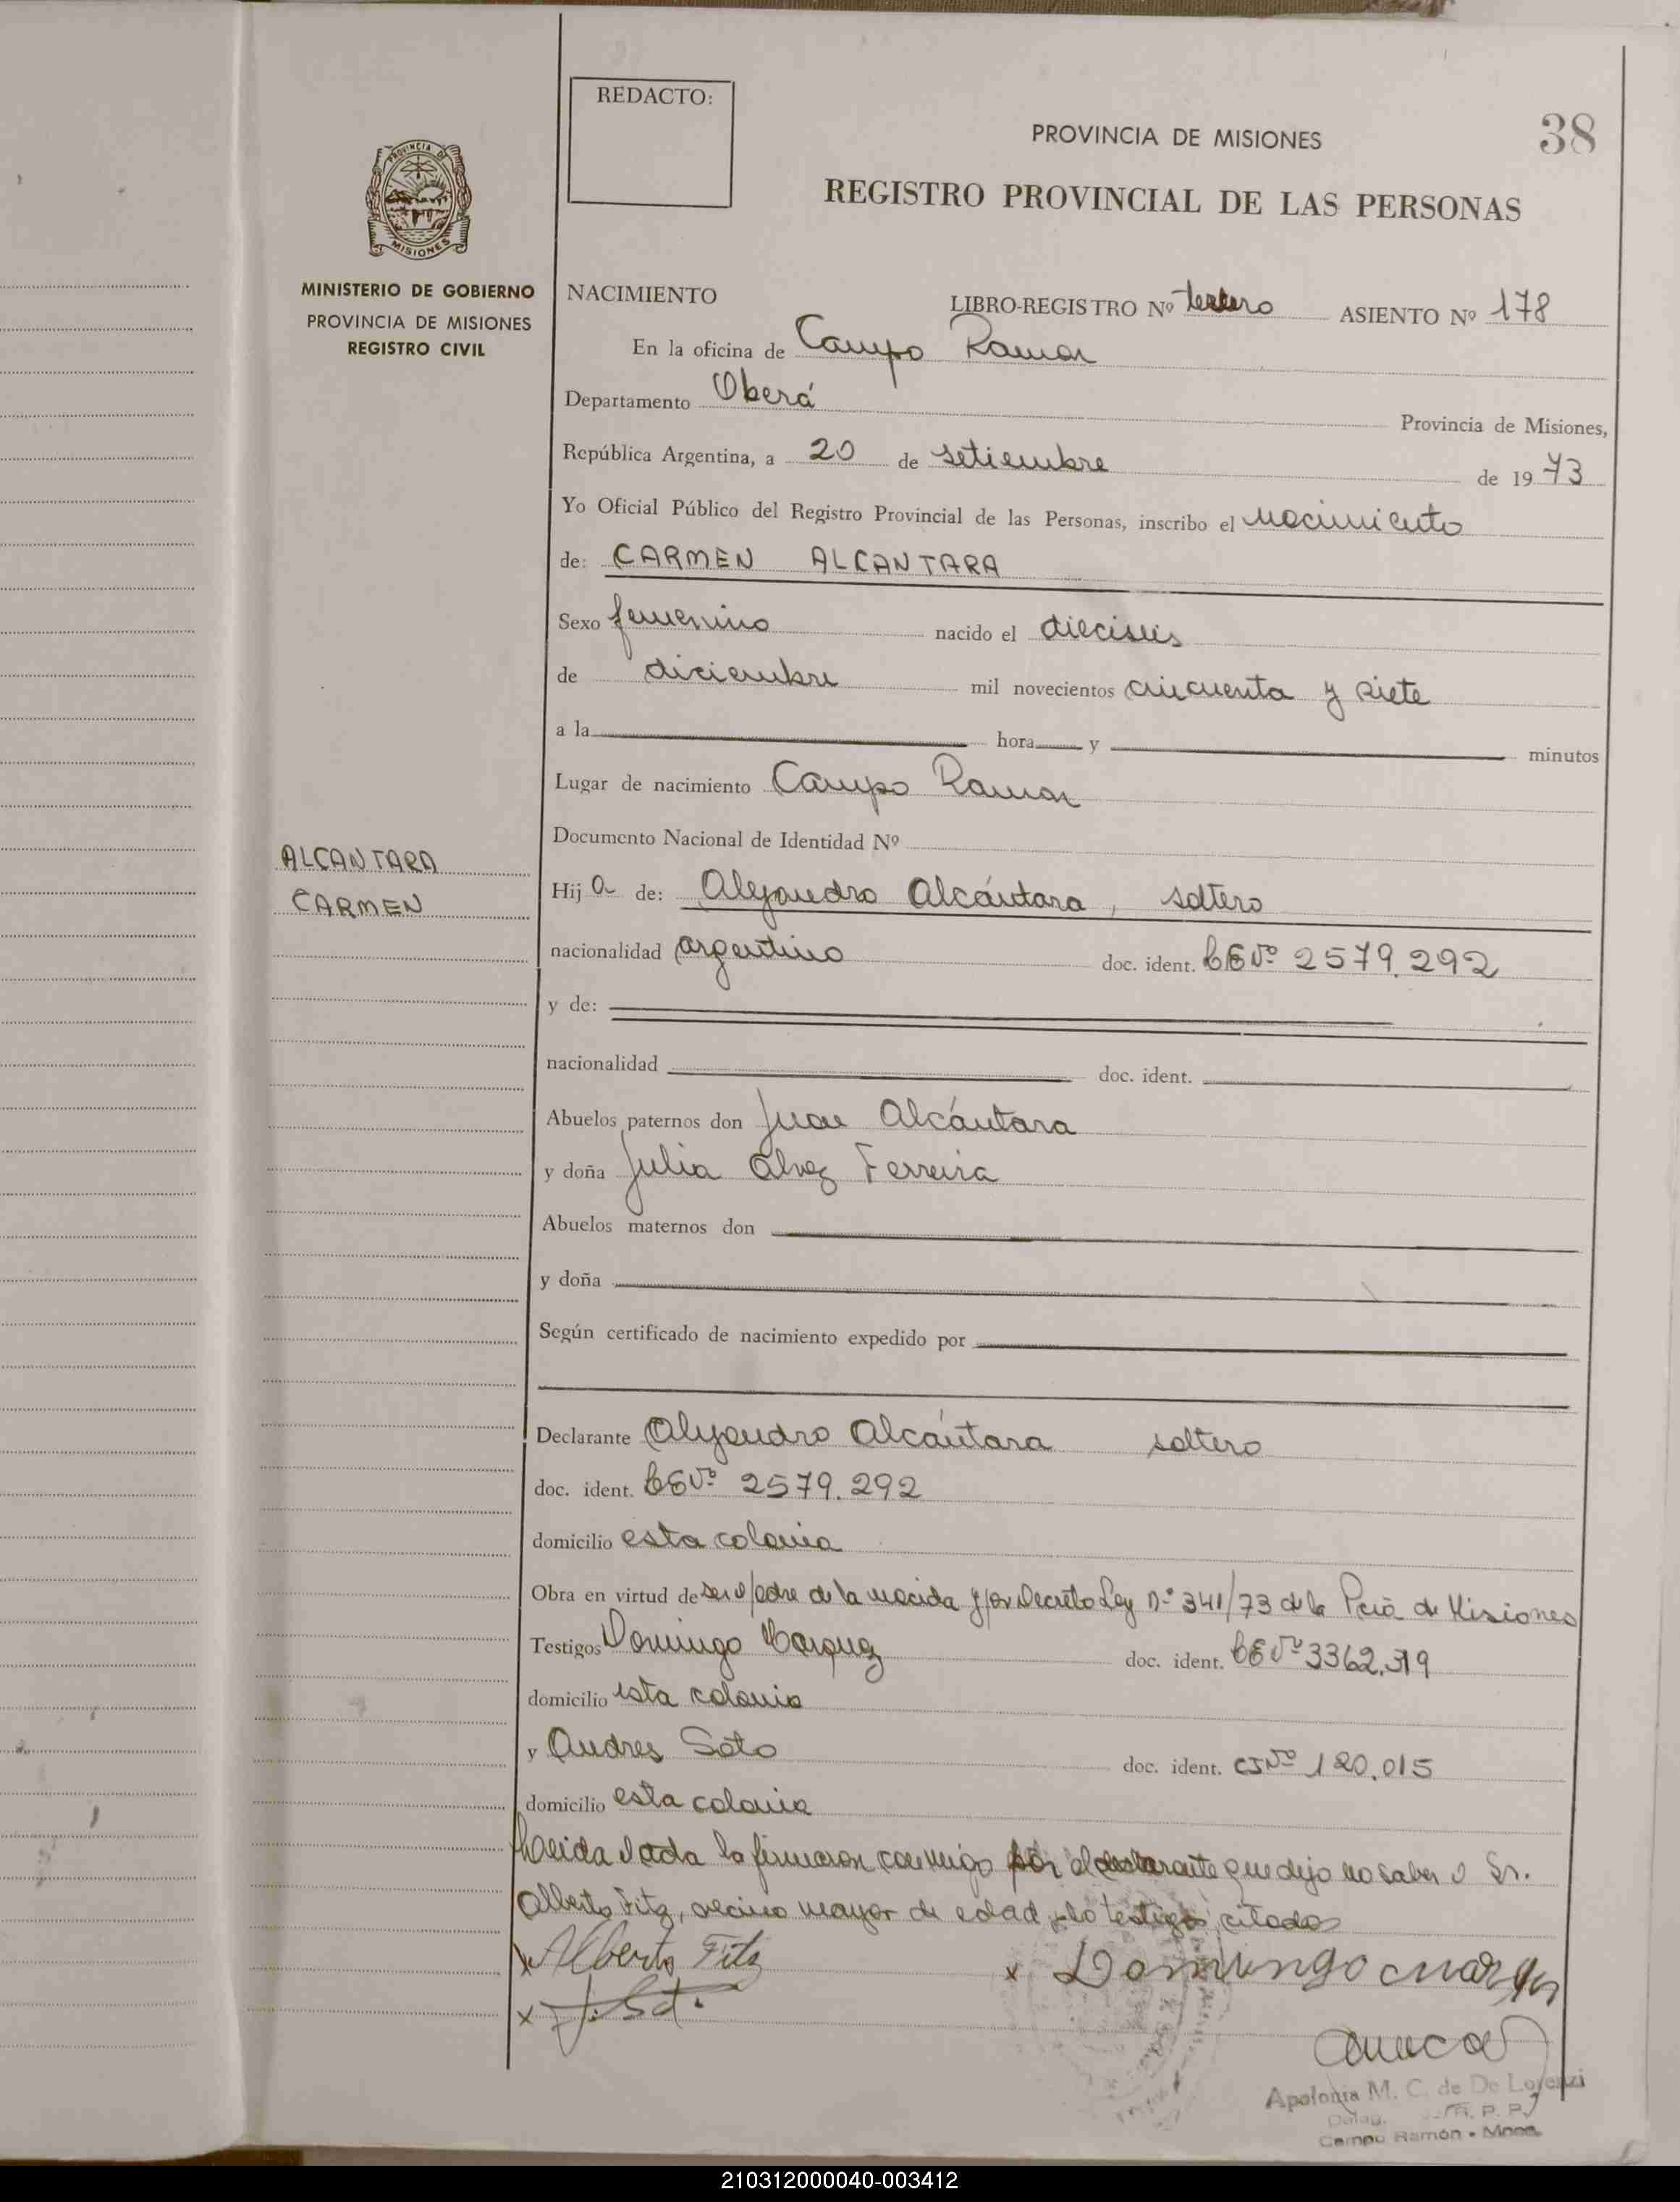 REDACTO:
PROVINCIA DE MISIONES
38
REGISTRO PROVINCIAL DE LAS PERSONAS
PROVINCIA DE
MISIONES
MINISTERIO DE GOBIERNO
PROVINCIA DE MISIONES
REGISTRO CIVIL
NACIMIENTO LIBRO-REGISTRO Nº tercero ASIENTO Nº 178
En la oficina de Campo Ramon
Departamento Oberá Provincia de Misiones,
República Argentina, a 20 de setiembre de 1973
Yo Oficial Público del Registro Provincial de las Personas, inscribo el nacimiento
de: CARMEN ALCANTARA
Sexo femenino nacido el dieciseis
de diciembre mil novecientos cincuenta y siete
a la hora y minutos
Lugar de nacimiento Campo Ramon
Documento Nacional de Identidad Nº
ALCANTARA
CARMEN
Hija de: Alejandro Alcántara, soltero
nacionalidad argentino doc. ident. LENº 2579.292
y de:
nacionalidad doc. ident.
Abuelos paternos don Juan Alcántara
y doña Julia Alvez Ferreira
Abuelos maternos don
y doña
Según certificado de nacimiento expedido por
Declarante Alejandro Alcántara soltero
doc. ident. LENº 2579.292
domicilio esta colonia
Obra en virtud de ser el padre de la nacida y por Decreto Ley Nº 341/73 de la Pcia de Misiones
Testigos Domingo Marquez doc. ident. LENº 3362.319
domicilio esta colonia
y Andres Soto doc. ident. CINº 120.015
domicilio esta colonia
Leida el acta la firmaron conmigo por el declarante que dijo no saber el Sr.
Alberto Fitz, vecino mayor de edad y lo testigos citados
x Alberto Fitz x Domingo Marquez
x
Apolonia M. C. de De Lorenzi
R. P. P.
Campo Ramón - Mnes.
210312000040-003412